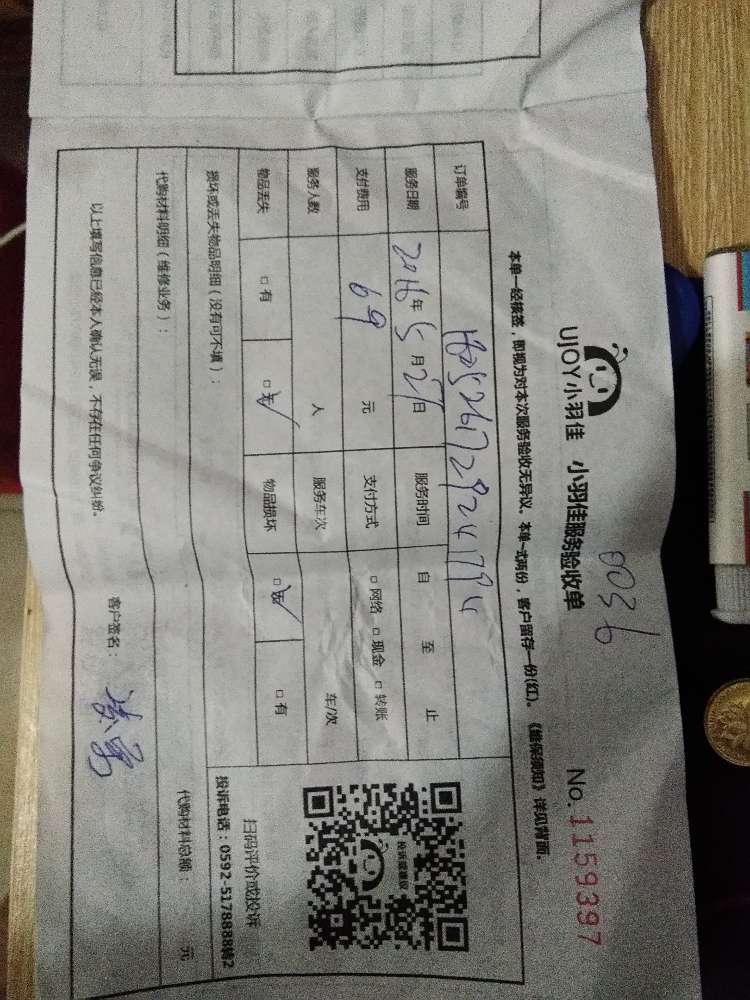 UJOY小羽佳 小羽佳服务验收单
0036
No.1159397
本单一经核签，即视为对本次服务验收无异议。本单一式两份，客户留存一份(红)。《维保须知》详见背面.
订单编号
服务日期 2016年5月27日 服务时间 自 至 止
支付费用 69 元 支付方式 □网络 □现金 □转账
服务人数 人 服务车次 车/次
物品丢失 □有 □无 物品损坏 □无 □有
损坏或丢失物品明细（没有可不填）：
代购材料明细（维修业务）： 代购材料总额： 元
以上填写信息已经本人确认无误，不存在任何争议纠纷。
客户签名：
投诉或建议
扫码评价或投诉
投诉电话：0592-5178888转2